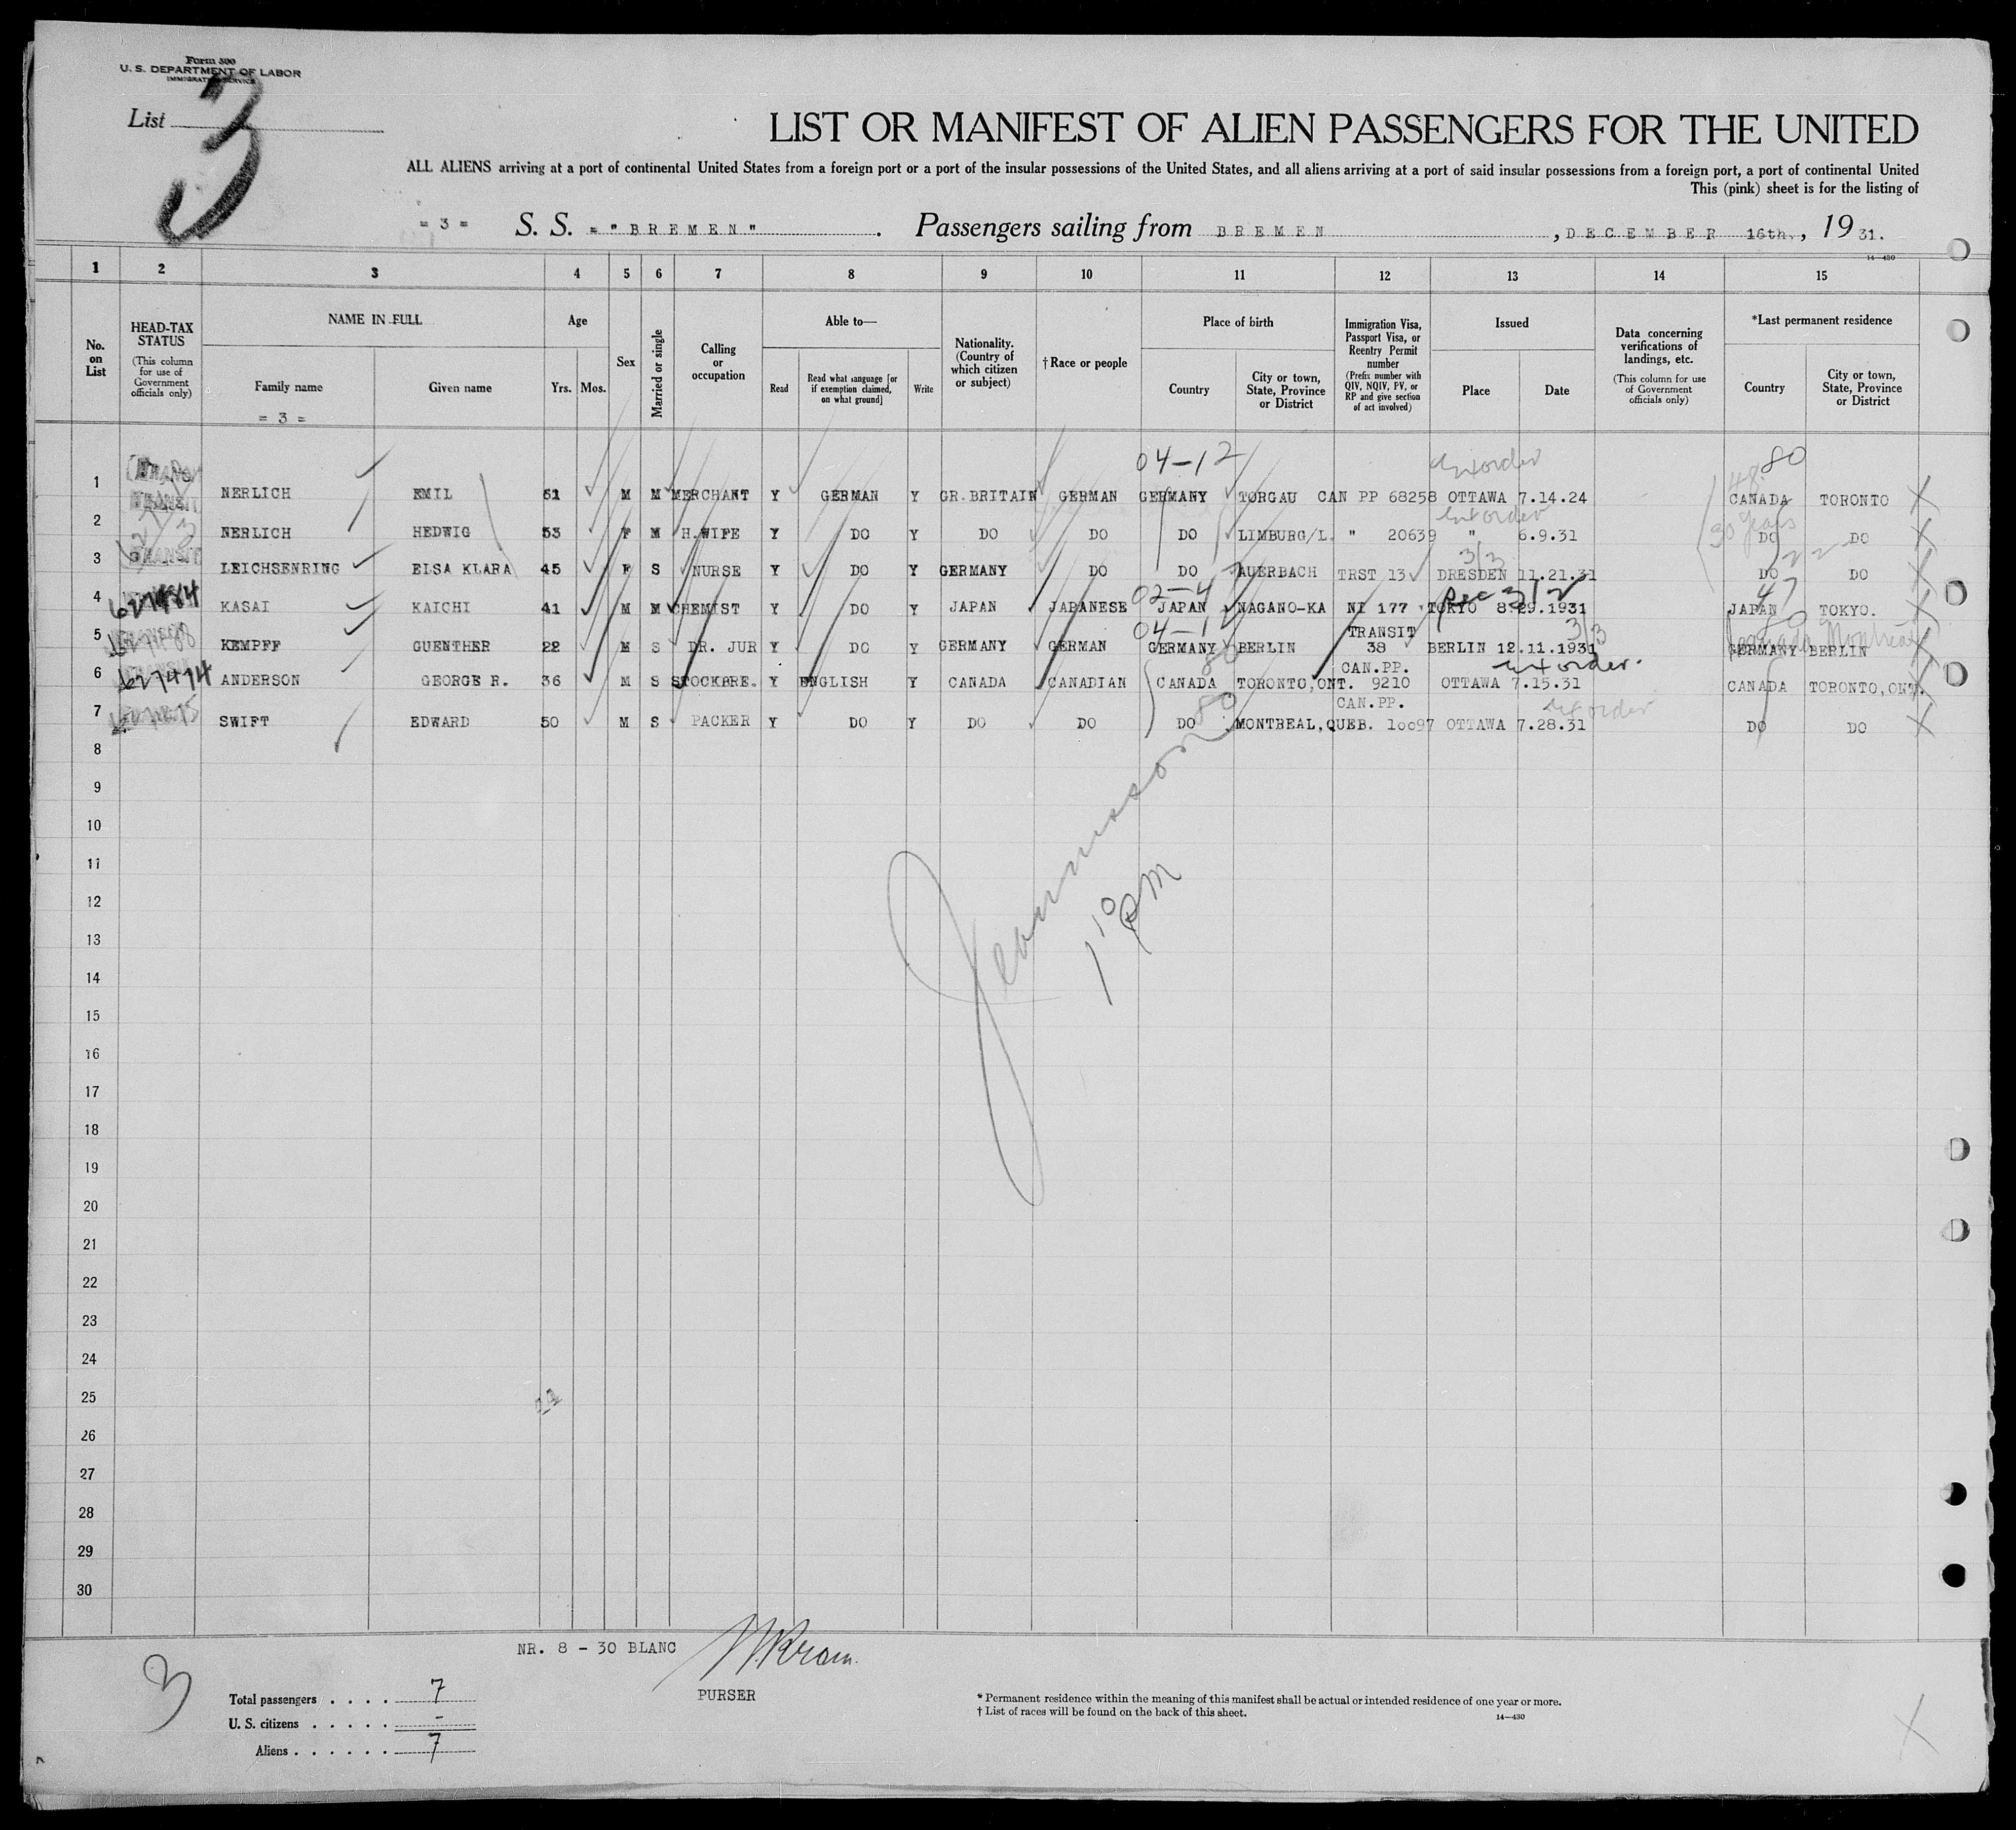 Form 500
U. S. DEPARTMENT OF LABOR
IMMIGRATION SERVICE
List 3
LIST OR MANIFEST OF ALIEN PASSENGERS FOR THE UNITED
ALL ALIENS arriving at a port of continental United States from a foreign port or a port of the insular possessions of the United States, and all aliens arriving at a port of said insular possessions from a foreign port, a port of continental United
This (pink) sheet is for the listing of
= 3 = S. S. = "BREMEN" . Passengers sailing from BREMEN , DECEMBER 16th., 19 31.
14—430
1 2 3 4 5 6 7 8 9 10 11 12 13 14 15
No. on List
HEAD-TAX STATUS
(This column for use of Government officials only)
NAME IN FULL
Family name
Given name
= 3 =
Age
Yrs. Mos.
Sex
Married or single
Calling or occupation
Able to—
Read
Read what language [or if exemption claimed, on what ground]
Write
Nationality. (Country of which citizen or subject)
† Race or people
Place of birth
Country
City or town, State, Province or District
Immigration Visa, Passport Visa, or Reentry Permit number
(Prefix number with QIV, NQIV, PV, or RP and give section of act involved)
Issued
Place
Date
Data concerning verifications of landings, etc.
(This column for use of Government officials only)
*Last permanent residence
Country
City or town, State, Province or District
04-12 80
1 TRANSIT NERLICH EMIL 61 M M MERCHANT Y GERMAN Y GR.BRITAIN GERMAN GERMANY TORGAU CAN PP 68258 OTTAWA 7.14.24 CANADA TORONTO
2 NERLICH HEDWIG 53 F M H.WIFE Y DO Y DO DO DO LIMBURG/L. " 20639 " 6.9.31 30 years DO DO
3/3
3 TRANSIT LEICHSENRING ELSA KLARA 45 F S NURSE Y DO Y GERMANY DO DO AUERBACH TRST 13 DRESDEN 11.21.31 DO DO
02-4 Sec 3/2 47
4 627484 KASAI KAICHI 41 M M CHEMIST Y DO Y JAPAN JAPANESE JAPAN NAGANO-KA NI 177 TOKYO 8.29.1931 JAPAN TOKYO.
04-1 TRANSIT 3/3 80
5 KEMPFF GUENTHER 22 M S DR. JUR Y DO Y GERMANY GERMAN GERMANY BERLIN 38 BERLIN 12.11.1931 GERMANY BERLIN
Canada Montreal
80 CAN.PP. Ext order.
6 627474 ANDERSON GEORGE R. 36 M S STOCKBRE. Y ENGLISH Y CANADA CANADIAN CANADA TORONTO,ONT. 9210 OTTAWA 7.15.31 CANADA TORONTO,ONT.
80 CAN.PP.
7 SWIFT EDWARD 50 M S PACKER Y DO Y DO DO DO MONTREAL,QUEB. 10097 OTTAWA 7.28.31 DO DO
8
9
10
11
12
13
14
15
16
17
18
19
20
21
22
23
24
25
26
27
28
29
30
1 10 PM
NR. 8 - 30 BLANC
PURSER
3
Total passengers . . . . 7
U. S. citizens . . . . . -
Aliens . . . . . . 7
* Permanent residence within the meaning of this manifest shall be actual or intended residence of one year or more.
† List of races will be found on the back of this sheet.
14—430